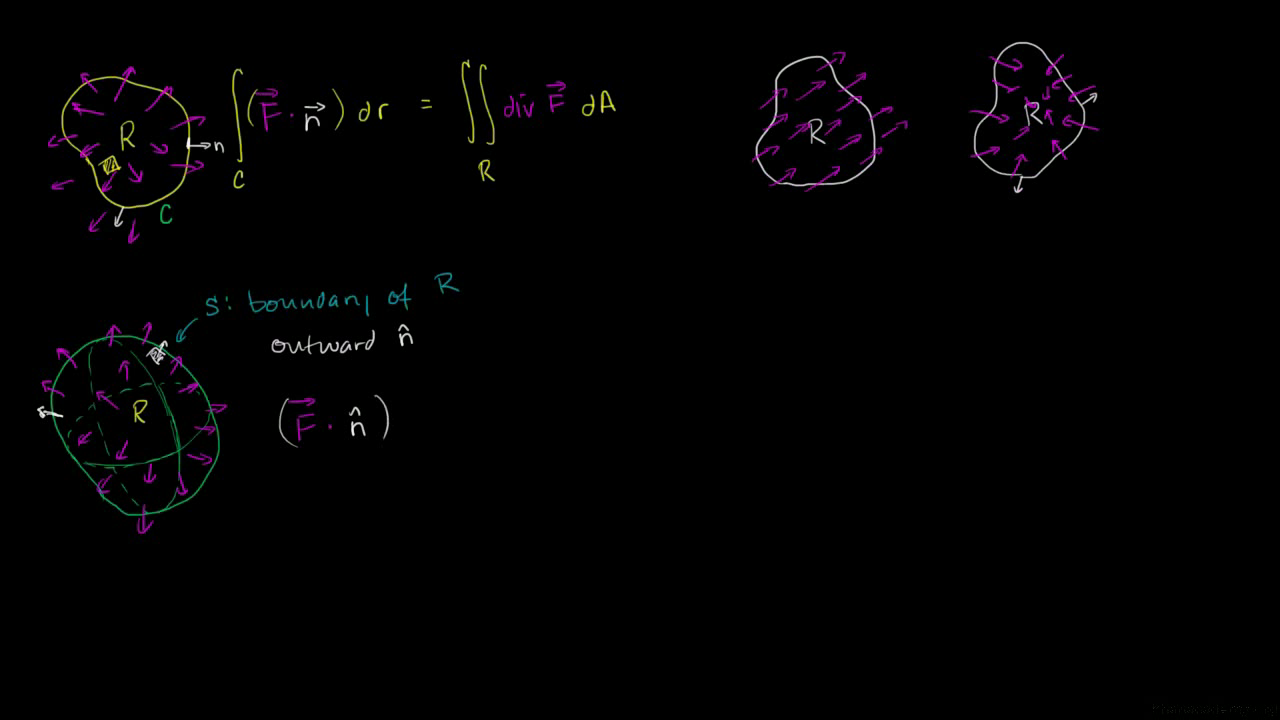 R
n
C
∫_C (F⃗ · n⃗) dr = ∬_R div F⃗ dA
R
R
S: boundary of R
outward n̂
R
(F⃗ · n̂)